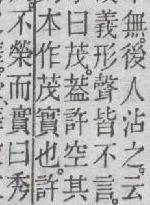 無。後人沾之。云
義形聲皆不言。
曰茂。葢許空其
本作茂實也。許
不榮而實曰秀